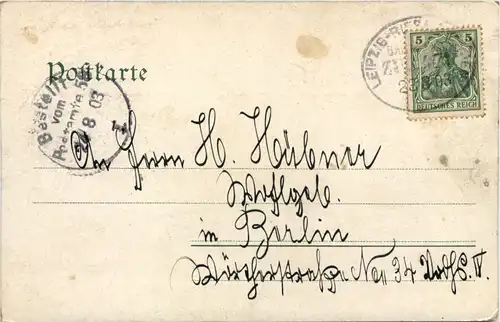 Postkarte
LEIPZIG-RIESA
5 5
8 03
DEUTSCHES REICH
Bestellt
vom
Postamte
8 03
An Herrn H. Hübner
Wohlgeb.
in Berlin
No 34 IV.